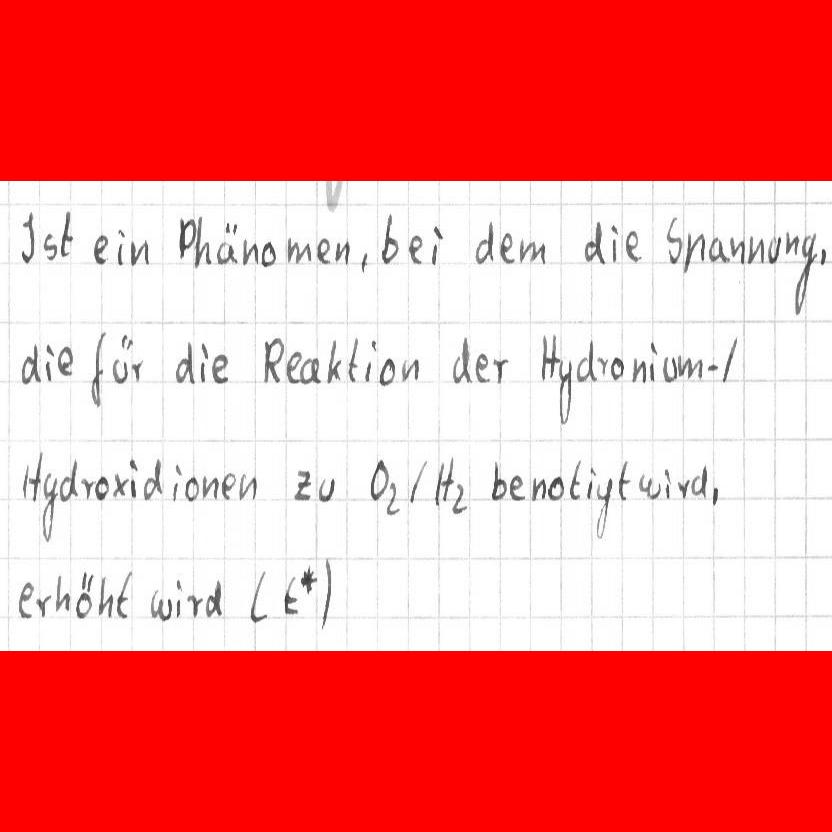 Ist ein Phänomen, bei dem die Spannung,
die für die Reaktion der Hydronium-/
Hydroxidionen zu O₂/H₂ benotigt wird,
erhöht wird (t*)